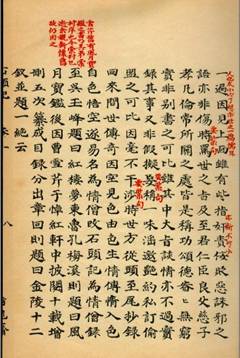 一遍因見上面雖有些指奸責佞貶惡誅邪之
語亦非傷時罵世之旨及至君仁臣良父慈子
孝凡倫常所關之處皆是稱功頌德眷眷無窮
實非別書之可比雖其中大旨談情亦不過實
錄其事又非假擬妄稱一味淫邀艷約私訂偷
盟之可比因毫不干涉時世方從頭至尾抄錄
回來問世傳奇因空見色由色生情傳情入色
自色悟空遂易名為情僧改石頭記為情僧錄
至吳玉峰題曰紅樓夢東魯孔梅溪則題曰風
月寶鑑後因曹雪芹于悼紅軒中披閱十載增
刪五次纂成目錄分出章回則題曰金陵十二
釵並題一絕云
雪芹舊有風月寶
鑑之書乃其弟棠
村序也今棠村已
逝余覩新懷舊
故仍因之
要緊句
要緊句
石頭記 卷一 八 脂硯齋